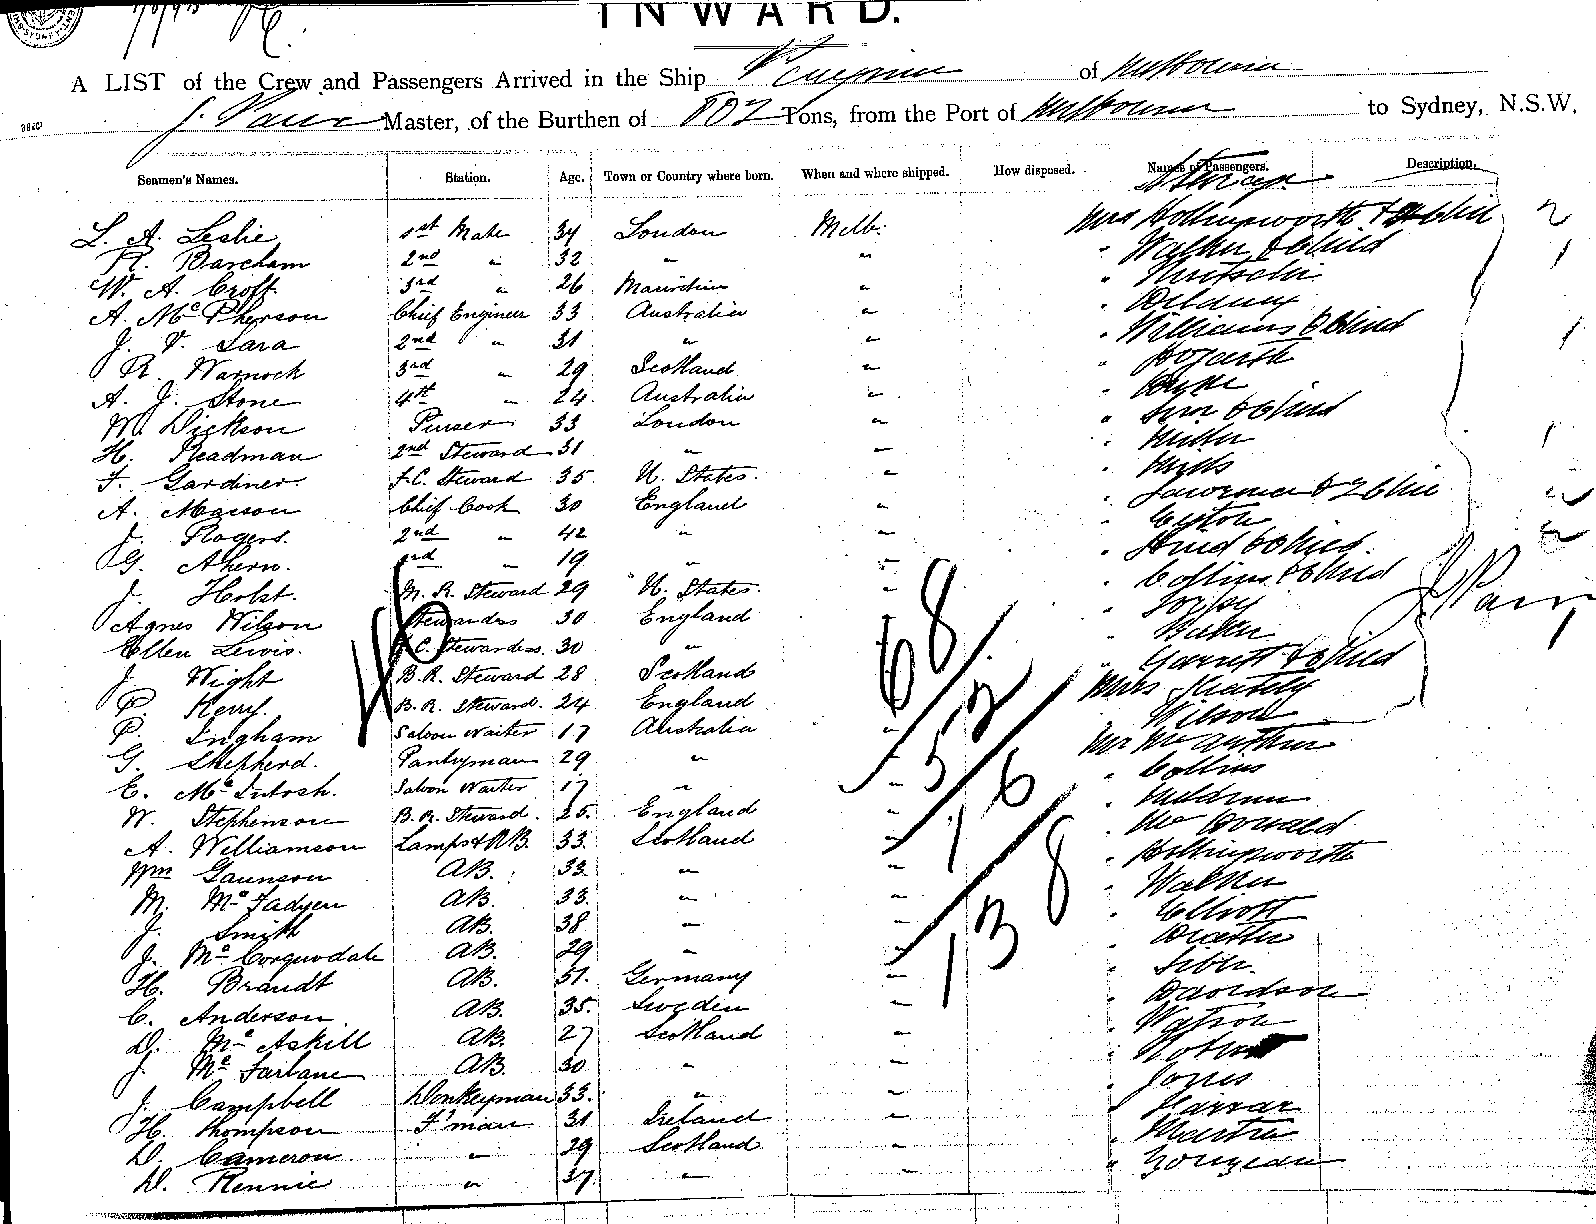 INWARD.
A LIST of the Crew and Passengers Arrived in the Ship of Melbourne
Master, of the Burthen of 802 Tons, from the Port of Melbourne to Sydney, N.S.W,
Seamen's Names. Station. Age. Town or Country where born. When and where shipped. How disposed. Names of Passengers. Description.
Steerage
L. A. Leslie 1st Mate 34 London Melb: Mrs Hollingsworth & 2
R. Barcham 2nd " 32 " " " Walker & Child 1
W. A. Croft 3rd " 26 Mauritius " "
A. McPherson Chief Engineer 33 Australia " " Delaney
J. T. Lara 2nd " 31 " " " Williams & Child 1
R. Warnock 3rd " 29 Scotland " " Hogarth
A. J. Stone 4th " 24 Australia " "
W. Dickson Purser 33 London " " Sim & Child 1
H. Readman 2nd Steward 31 " " " Miller
F. Gardiner F.C. Steward 35 U. States. " "
A. Maison Chief Cook 30 England " " Lawrence & 2 Chil 2
J. Rogers. 2nd " 42 " " "
G. Ahern. 3rd " 19 " " " Hind & Child. 2
J. Holst. M. R. Steward 29 U. States. " " Collins & Child
Agnes Wilson Stewardess 30 England " "
Ellen Lewis. F.C. Stewardess. 30 " " " Baker J. Pain
J. Wight B.R. Steward 28 Scotland " " Garrett & Child
P. Kerry. B.R. Steward. 24 England " Miss
P. Ingham Saloon Waiter 17 Australia " " Wilson
G. Shepherd. Pantryman 29 " " Mr McArthur
E. McIntosh. Saloon Waiter 17 " " " Collins
W. Stephenson B.R. Steward. 25. England " " Meldrum
A. Williamson Lamps & AB. 33. Scotland " " McDonald
Wm Gaunson AB. 33. " " " Hollingsworth
M. McFadyen AB. 33. " " " Walker
J. Smith AB. 38 " " " Elliott
J. McCorquodale AB. 29 " " "
H. Brandt AB. 51. Germany " "
C. Anderson AB. 35. Sweden " " Davidson
D. McAskill AB. 27 Scotland " " Watson
J. McFarlane AB. 30 " " "
J. Campbell Donkeyman 33. " " " Jones
H. Thompson F'man 31 Ireland " " Farrar
D. Cameron " 29 Scotland " " Martin
D. Rennie " 37. " " "
46
68
52
16
138